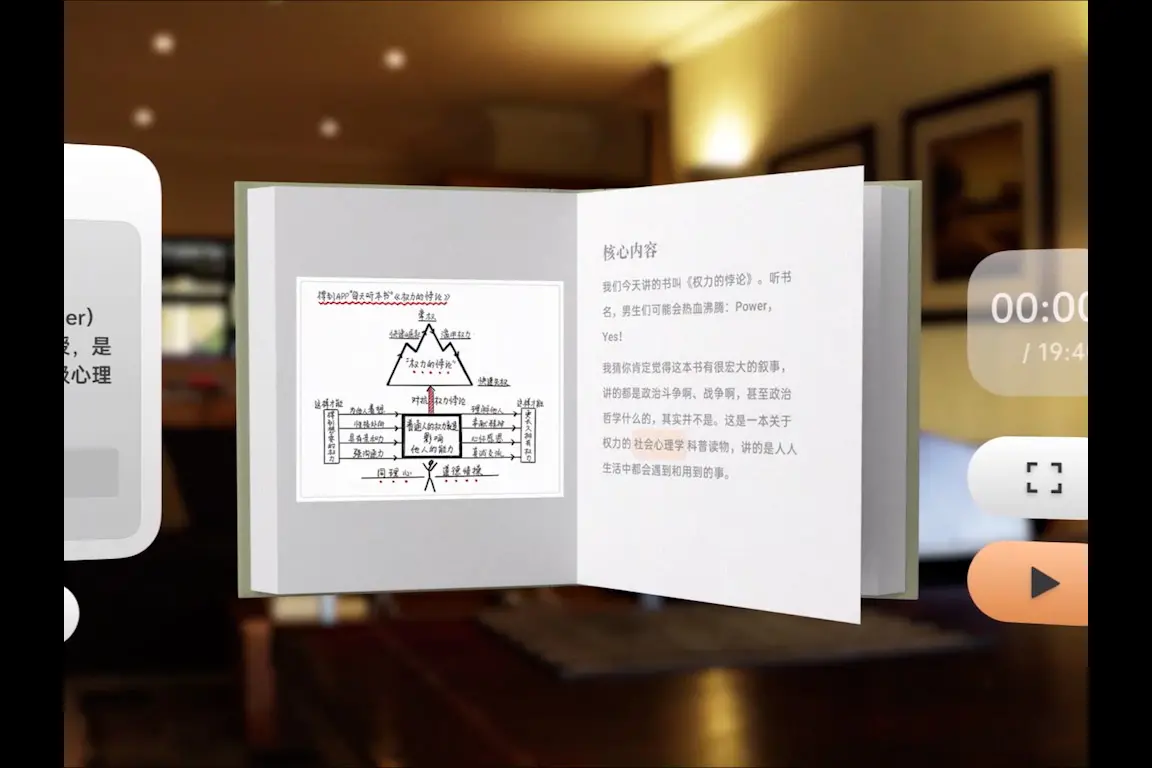 er)
，是
心理
得到APP"每天听本书"《权力的悖论》
掌权
快速崛起
滥用权力
"权力的悖论"
快速失权
对抗权力悖论
这样才能
得到想要的权力
为他人着想
强沟通力
普通人的权力就是
影响
他人的能力
理解他人
这样才能
更长久拥有权力
同理心
道德情操
核心内容
我们今天讲的书叫《权力的悖论》。听书
名，男生们可能会热血沸腾：Power，
Yes!
我猜你肯定觉得这本书有很宏大的叙事，
讲的都是政治斗争啊、战争啊，甚至政治
哲学什么的，其实并不是。这是一本关于
权力的社会心理学科普读物，讲的是人人
生活中都会遇到和用到的事。
00:00
/ 19:4